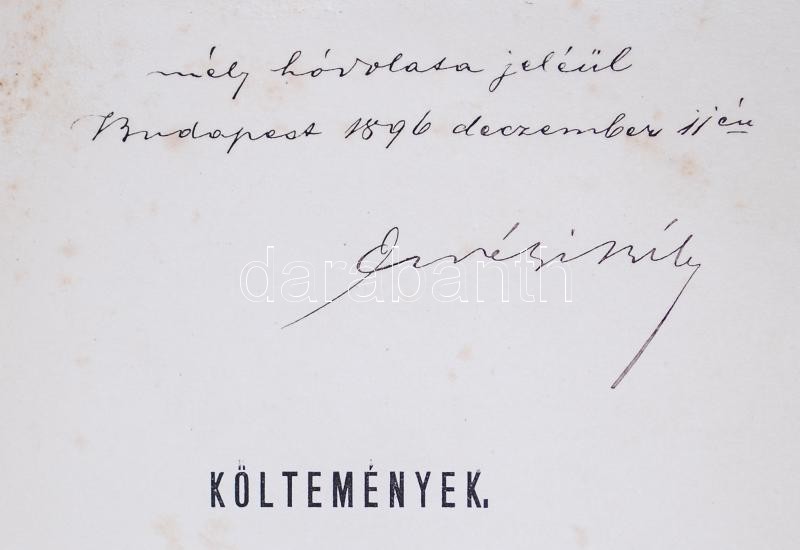 mély hódolata jeléül
Budapest 1896 deczember 11én
darabanth
KÖLTEMÉNYEK.